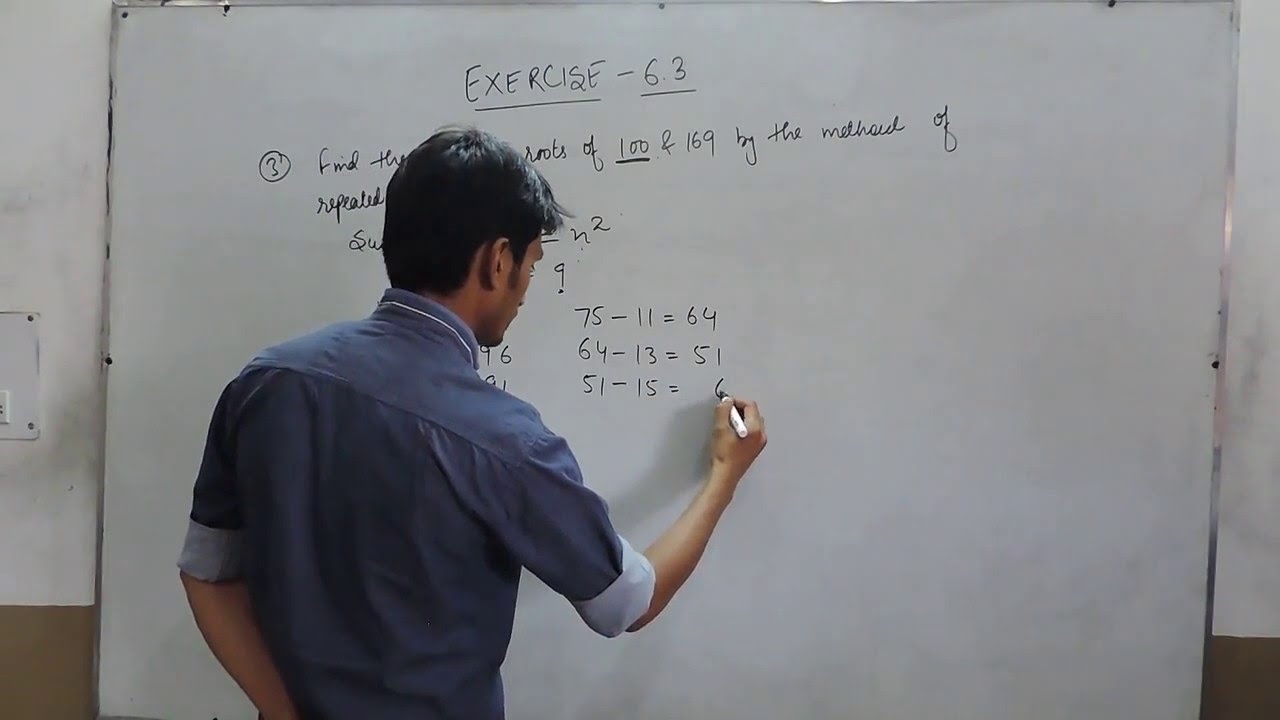 EXERCISE - 6.3
③ Find the roots of 100 & 169 by the method of
repeated
= n²
9
75 - 11 = 64
96 64 - 13 = 51
91 51 - 15 = 6